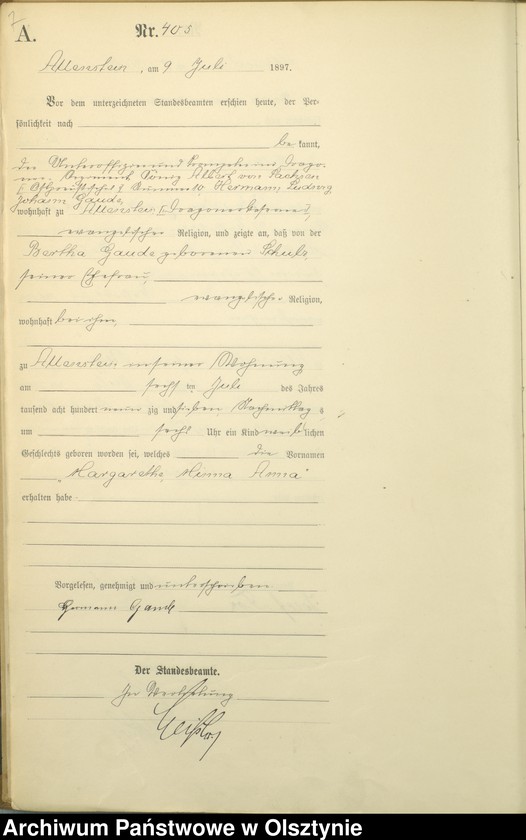 A. Nr. 405
Allenstein, am 9 Juli 1897.
Vor dem unterzeichneten Standesbeamten erschien heute, der Per-
sönlichkeit nach
bekannt,
der Unteroffizier und Trompeter im Drago-
ner Regiment König Albert von Sachsen
(Ostpreußisches) Nummer 10, Hermann Ludwig
Johann Gande,
wohnhaft zu Allenstein, Dragonerkaserne,
evangelischer Religion, und zeigte an, daß von der
Bertha Gande geborenen Schulz
seiner Ehefrau,
evangelischer Religion,
wohnhaft bei ihm,
zu Allenstein in seiner Wohnung
am sechsten Juli des Jahres
tausend acht hundert neunzig und sieben Nachmittags
um sechs Uhr ein Kind weiblichen
Geschlechts geboren worden sei, welches die Vornamen
„Margarethe Minna Anna“
erhalten habe
Vorgelesen, genehmigt und unterschrieben
Hermann Gande
Der Standesbeamte.
In Vertretung
Archiwum Państwowe w Olsztynie